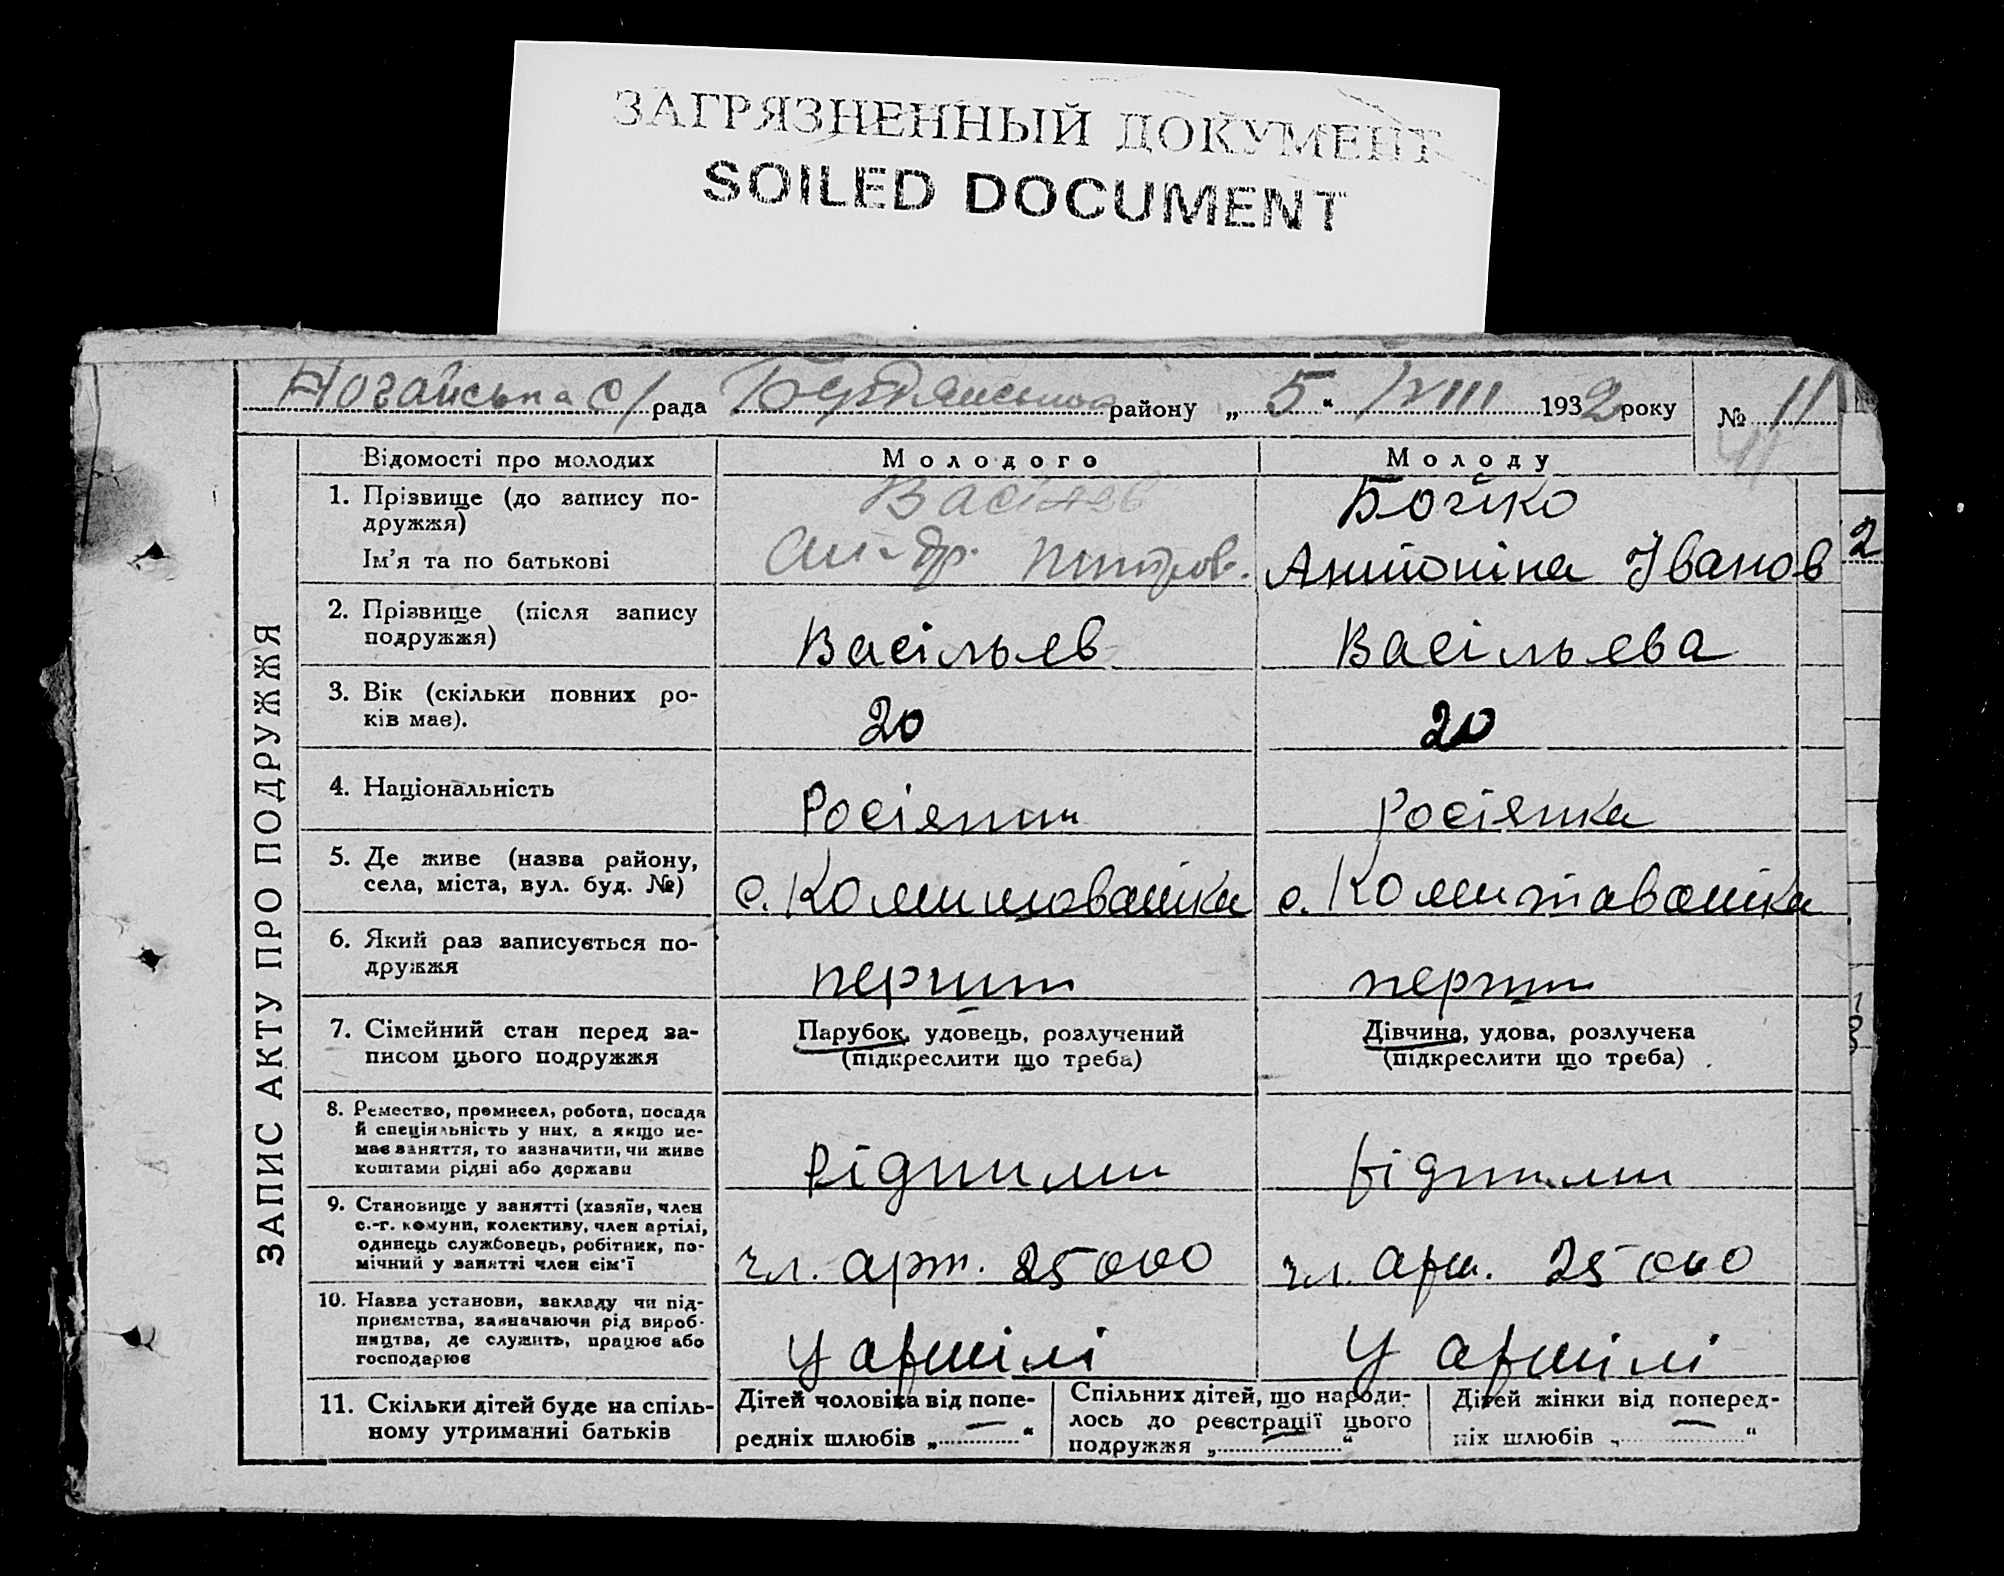 ЗАГРЯЗНЕННЫЙ ДОКУМЕНТ
SOILED DOCUMENT
Ногайська с/рада Бердянського району „ 5 “ /VIII 1932 року № 11
11
ЗАПИС АКТУ ПРО ПОДРУЖЖЯ
Відомості про молодих Молодого Молоду
1. Прізвище (до запису по- Бойко
дружжя)
Ім'я та по батькові Антоніна Іванов
2. Прізвище (після запису
подружжя) Васільєв Васільєва
3. Вік (скільки повних ро-
ків має). 20 20
4. Національність Росіянин росіянка
5. Де живе (назва району,
села, міста, вул. буд. №) с. с.
6. Який раз записується по-
дружжя перший перший
7. Сімейний стан перед за- Парубок, удовець, розлучений Дівчина, удова, розлучена
писом цього подружжя (підкреслити що треба) (підкреслити що треба)
8. Ремество, промисел, робота, посада
й спеціяльність у них, а якщо не-
має заняття, то зазначити, чи живе
коштами рідні або держави рідними рідними
9. Становище у занятті (хазяїн, член
с.-г. комуни, колективу, член артілі,
одинець службовець, робітник, по-
мічний у занятті член сім'ї чл. арт. 25000 чл. арт. 25000
10. Назва установи, закладу чи під-
приємства, зазначаючи рід вироб-
ництва, де служить, працює або
господарює у артілі у артілі
11. Скільки дітей буде на спіль- Дітей чоловіка від попе- Спільних дітей, що народи- Дітей жінки від поперед-
ному утриманні батьків редніх шлюбів „ — “ лось до реєстрації цього ніх шлюбів „ — “
подружжя „ — “
2